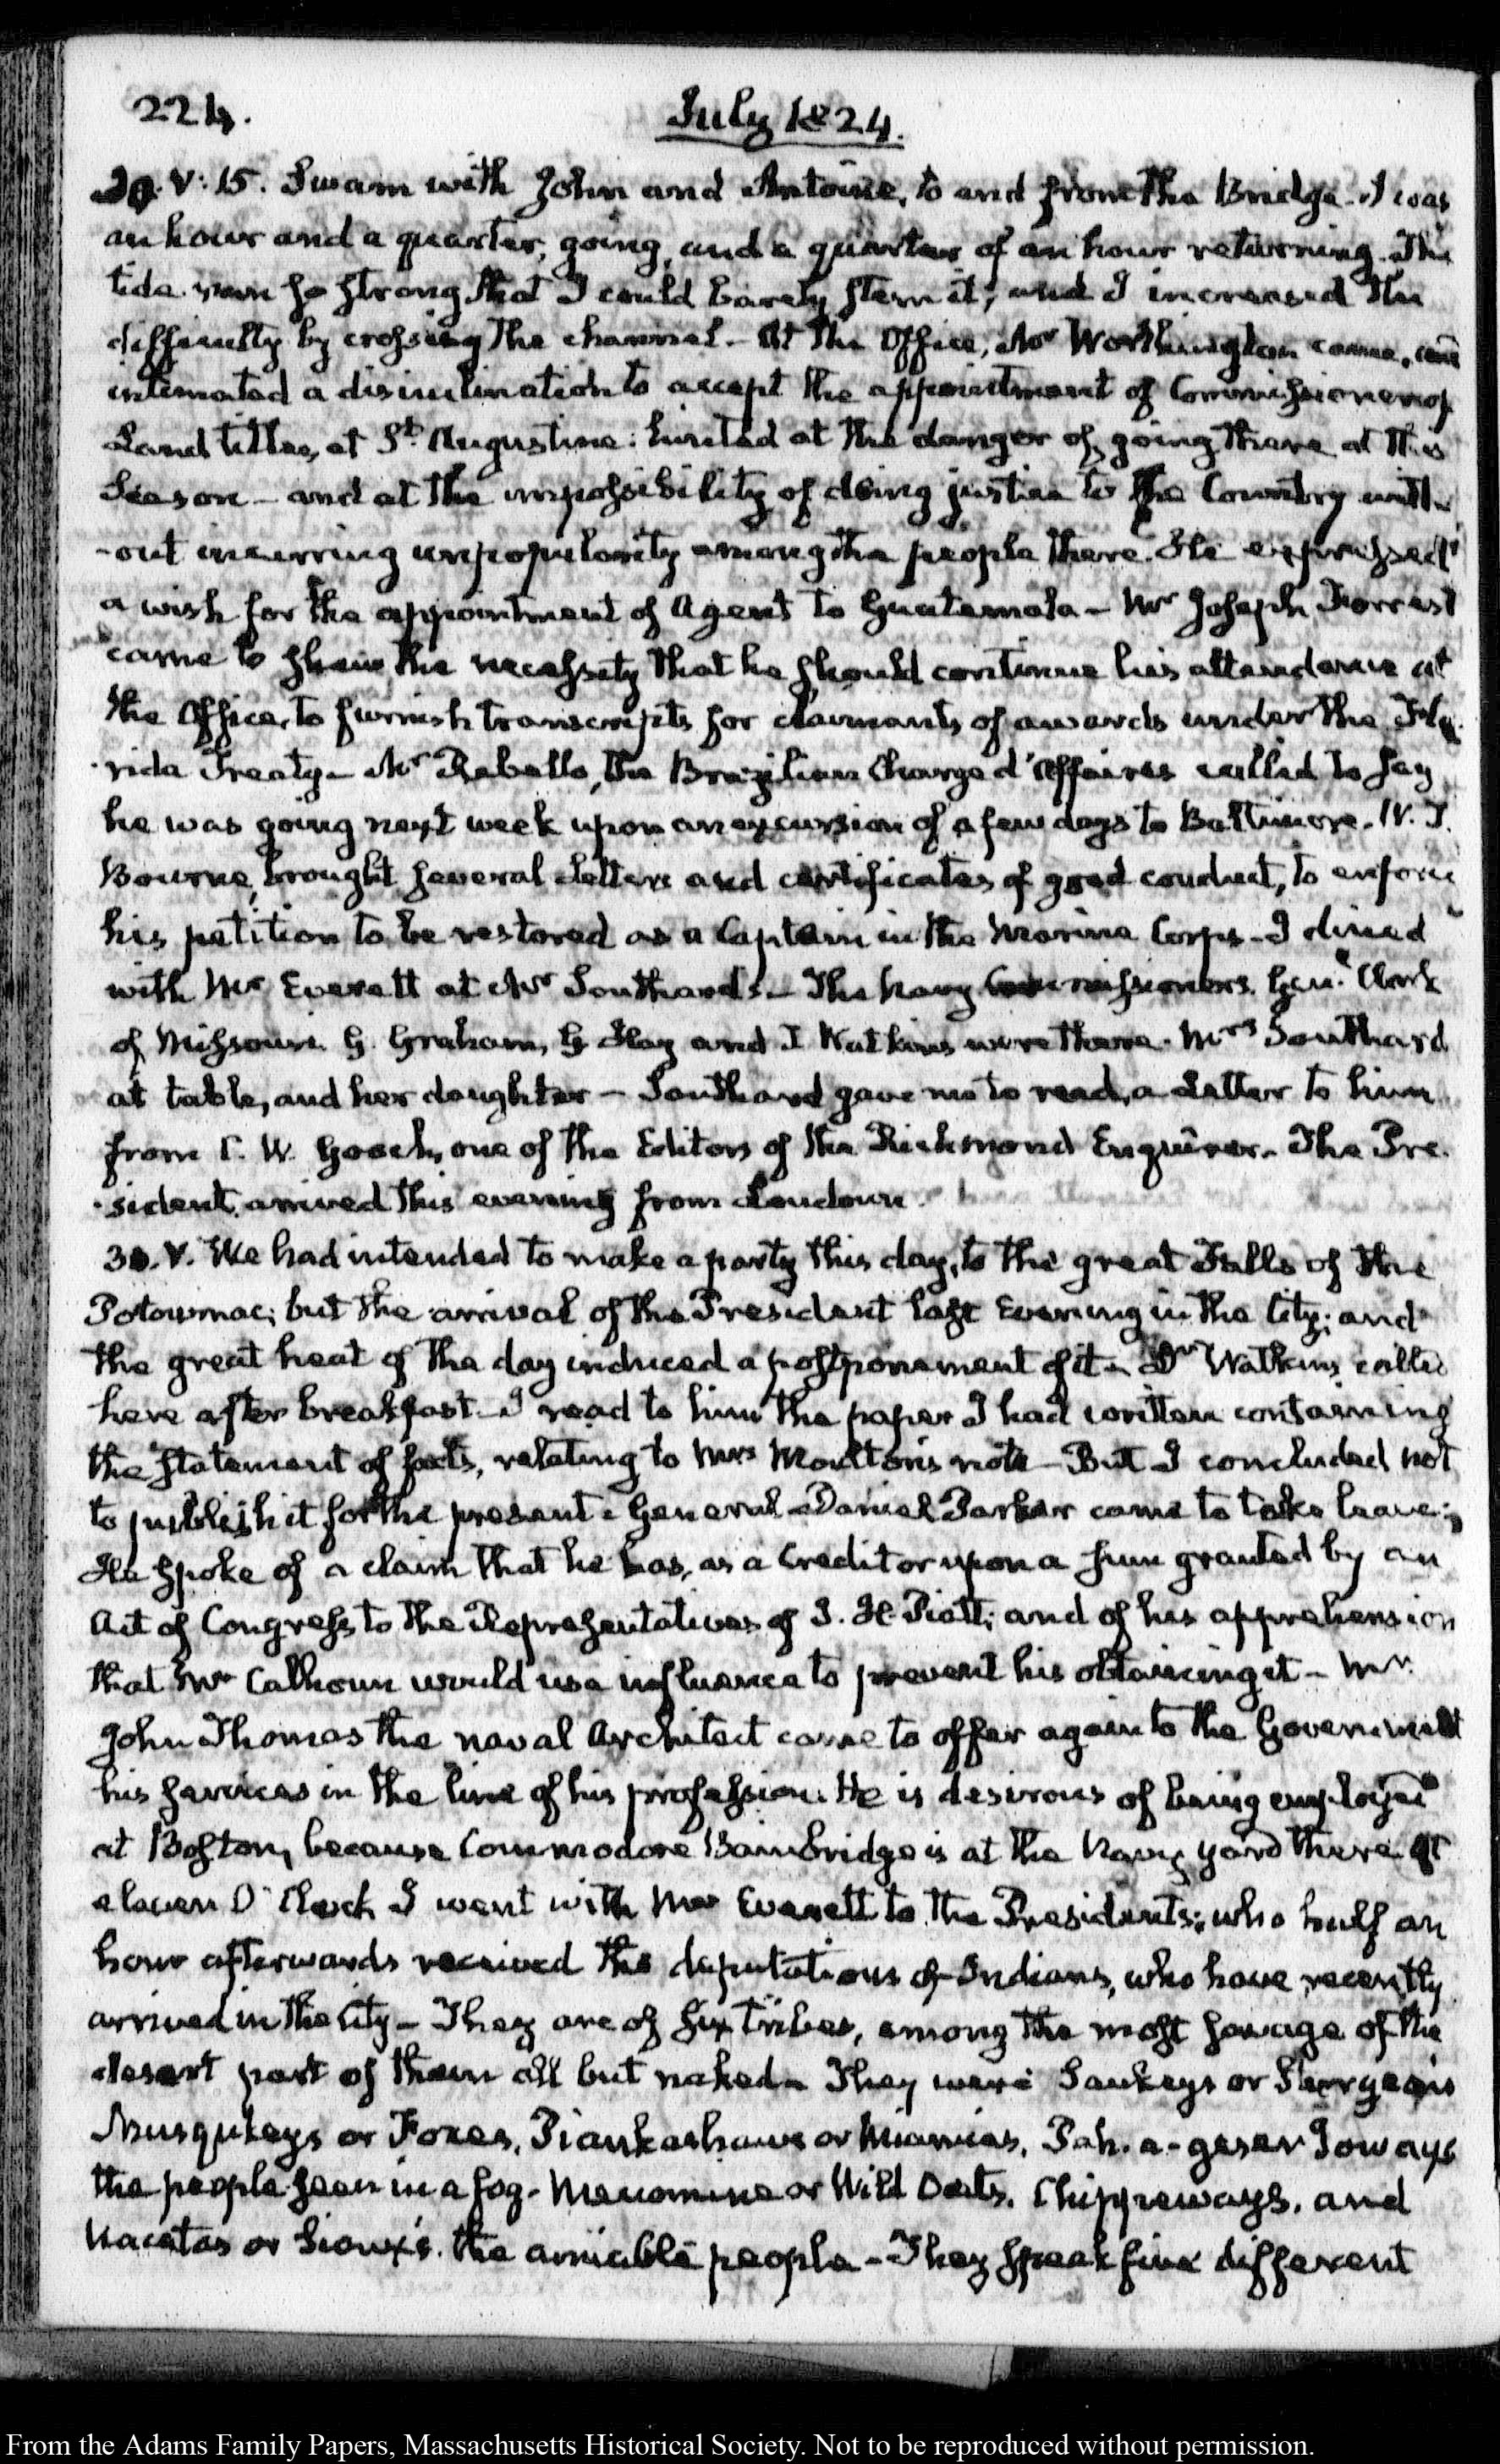 224.
July 1824.
29. V: 15. Swam with John and Antoine, to and from the Bridge. I was
an hour and a quarter, going, and a quarter of an hour returning. The
tide was so strong that I could barely stem it; and I increased the
difficulty by crossing the channel. At the Office, Mr Worthington came, and
intimated a disinclination to accept the appointment of Commissioner of
Land titles, at St. Augustine: hinted at the danger of going there at this
Season — and at the impossibility of doing justice to the Country with-
-out incurring unpopularity among the people there. He expressed
a wish for the appointment of Agent to Guatemala — Mr Joseph Forrest
came to shew the necessity that he should continue his attendance at
the Office, to furnish transcripts for claimants of awards under the Flo-
-rida Treaty — Mr Rebello, the Brazilian Chargé d'Affaires called to say
he was going next week upon an excursion of a few days to Baltimore.
Bourne, brought several Letters and certificates of good conduct, to enforce
his petition to be restored as a Captain in the Marine Corps — I dined
with Mr Everett at Mr Southard's — The Navy Commissioners. Genl. Clark
of Missouri. G. Graham, G Hay and T Watkins were there. Mrs Southard
at table, and her daughter — Southard gave me to read, a Letter to him
from C. W. Gooch, one of the Editors of the Richmond Enquirer. The Pre-
-sident, arrived this evening from Loudoun.
30. V. We had intended to make a party this day, to the great Falls of the
Potowmac; but the arrival of the President last Evening in the City; and
the great heat of the day induced a postponement of it — Dr Watkins called
here after breakfast — I read to him the paper I had written containing
the statement of facts, relating to Mrs Moulton's note — But I concluded not
to publish it for the present — General Daniel Parker came to take leave:
He spoke of a claim that he has, as a Creditor upon a sum granted by an
Act of Congress to the Representatives of J. H. Piatt; and of his apprehension
that Mr Calhoun would use influence to prevent his obtaining it — Mr.
John Thomas the naval Architect came to offer again to the Government
his services in the line of his profession. He is desirous of being employed
at Boston, because Commodore Bainbridge is at the Navy yard there. At
eleven O'Clock I went with Mr Everett to the President's; who half an
hour afterwards received the deputations of Indians, who have recently
arrived in the City — They are of six Tribes, among the most savage of the
desert part of them all but naked — They were Saukeys or Sturgeons
Musqukeys or Foxes, Piankashaws or Miamies, Pah-a-geser Ioways
the people seen in a fog — Menomine or Wild Oats, Chippeways, and
Nacatas or Sioux's. the amiable people — They speak five different
From the Adams Family Papers, Massachusetts Historical Society. Not to be reproduced without permission.